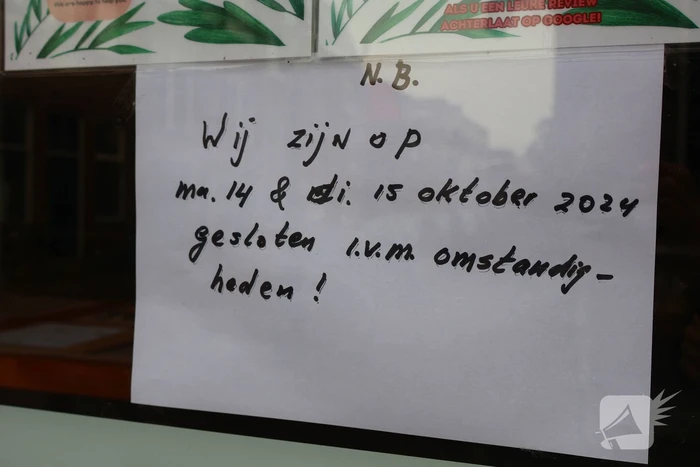 We are happy to help you
ALS U EEN LEUKE REVIEW
ACHTERLAAT OP GOOGLE!
N.B.
Wij zijn op
ma. 14 & di. 15 oktober 2024
gesloten i.v.m. omstandig-
heden!